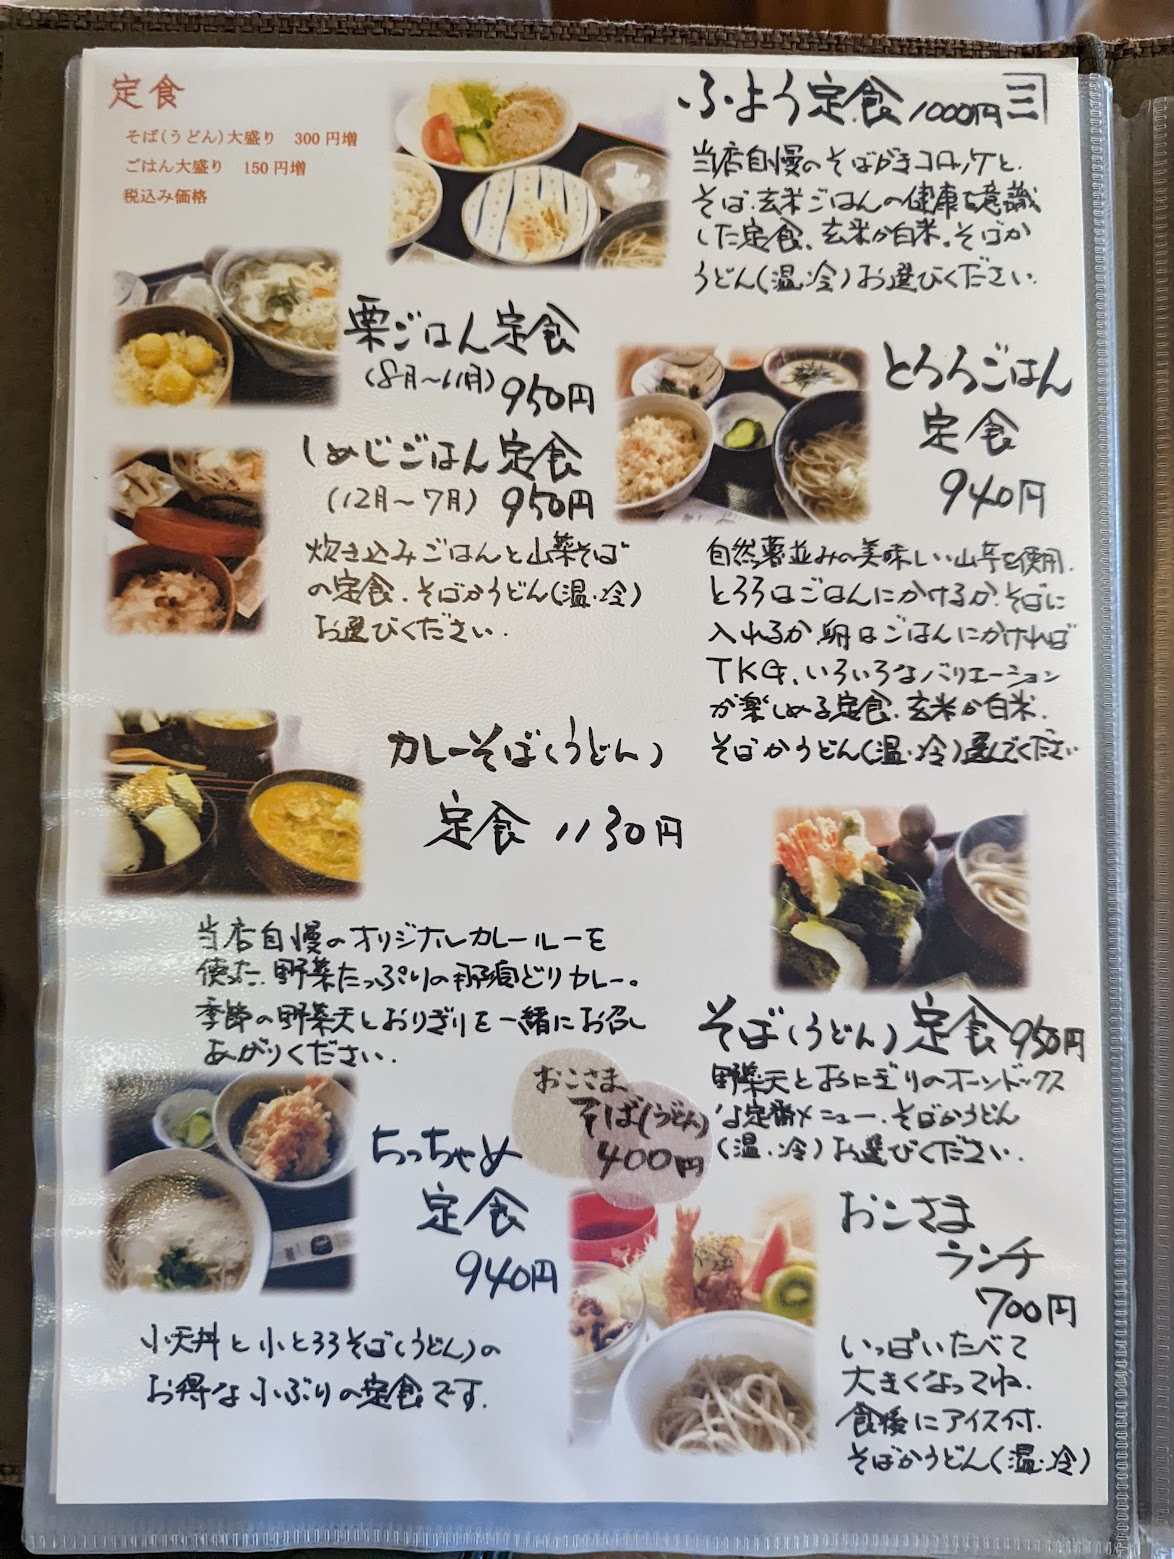 定食
そば(うどん)大盛り 300円増
ごはん大盛り 150円増
税込み価格
ふよう定食 1000円
当店自慢のそばがきコロッケと、
そば、玄米ごはんの健康を意識
した定食、玄米か白米、そばか
うどん(温・冷)お選びください。
栗ごはん定食
(8月〜11月) 950円
しめじごはん定食
(12月〜7月) 950円
炊き込みごはんと山菜そば
の定食、そばかうどん(温・冷)
お選びください。
とろろごはん
定食
940円
自然薯並みの美味しい山芋を使用、
とろろはごはんにかけるか、そばに
入れるか、卵はごはんにかければ
TKG、いろいろなバリエーション
が楽しめる定食、玄米か白米、
そばかうどん(温・冷)選んでください
カレーそば(うどん)
定食 1130円
当店自慢のオリジナルカレールーを
使った、野菜たっぷりの那須どりカレー。
季節の野菜天とおりぎりを一緒にお召し
あがりください。
そば(うどん)定食 950円
野菜天とおにぎりのオーソドックス
な定番メニュー、そばかうどん
(温・冷)お選びください。
おこさま
そば(うどん)
400円
ちっちゃめ
定食
940円
小天丼と小とろろそば(うどん)の
お得な小ぶりの定食です。
おこさま
ランチ
700円
いっぱいたべて
大きくなってね、
食後にアイス付、
そばかうどん(温・冷)